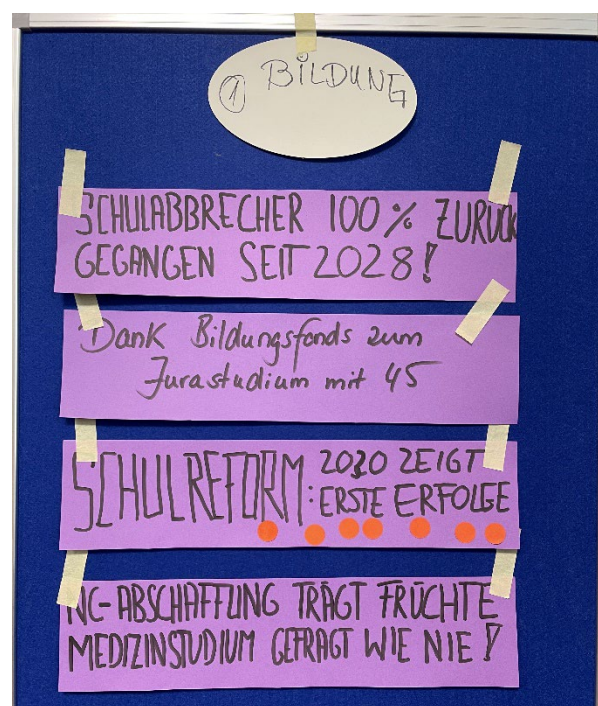 ① BILDUNG
SCHULABBRECHER 100% ZURÜCK
GEGANGEN SEIT 2028!
Dank Bildungsfonds zum
Jurastudium mit 45
SCHULREFORM: 2030 ZEIGT
ERSTE ERFOLGE
NC-ABSCHAFFUNG TRÄGT FRÜCHTE
MEDIZINSTUDIUM GEFRAGT WIE NIE!